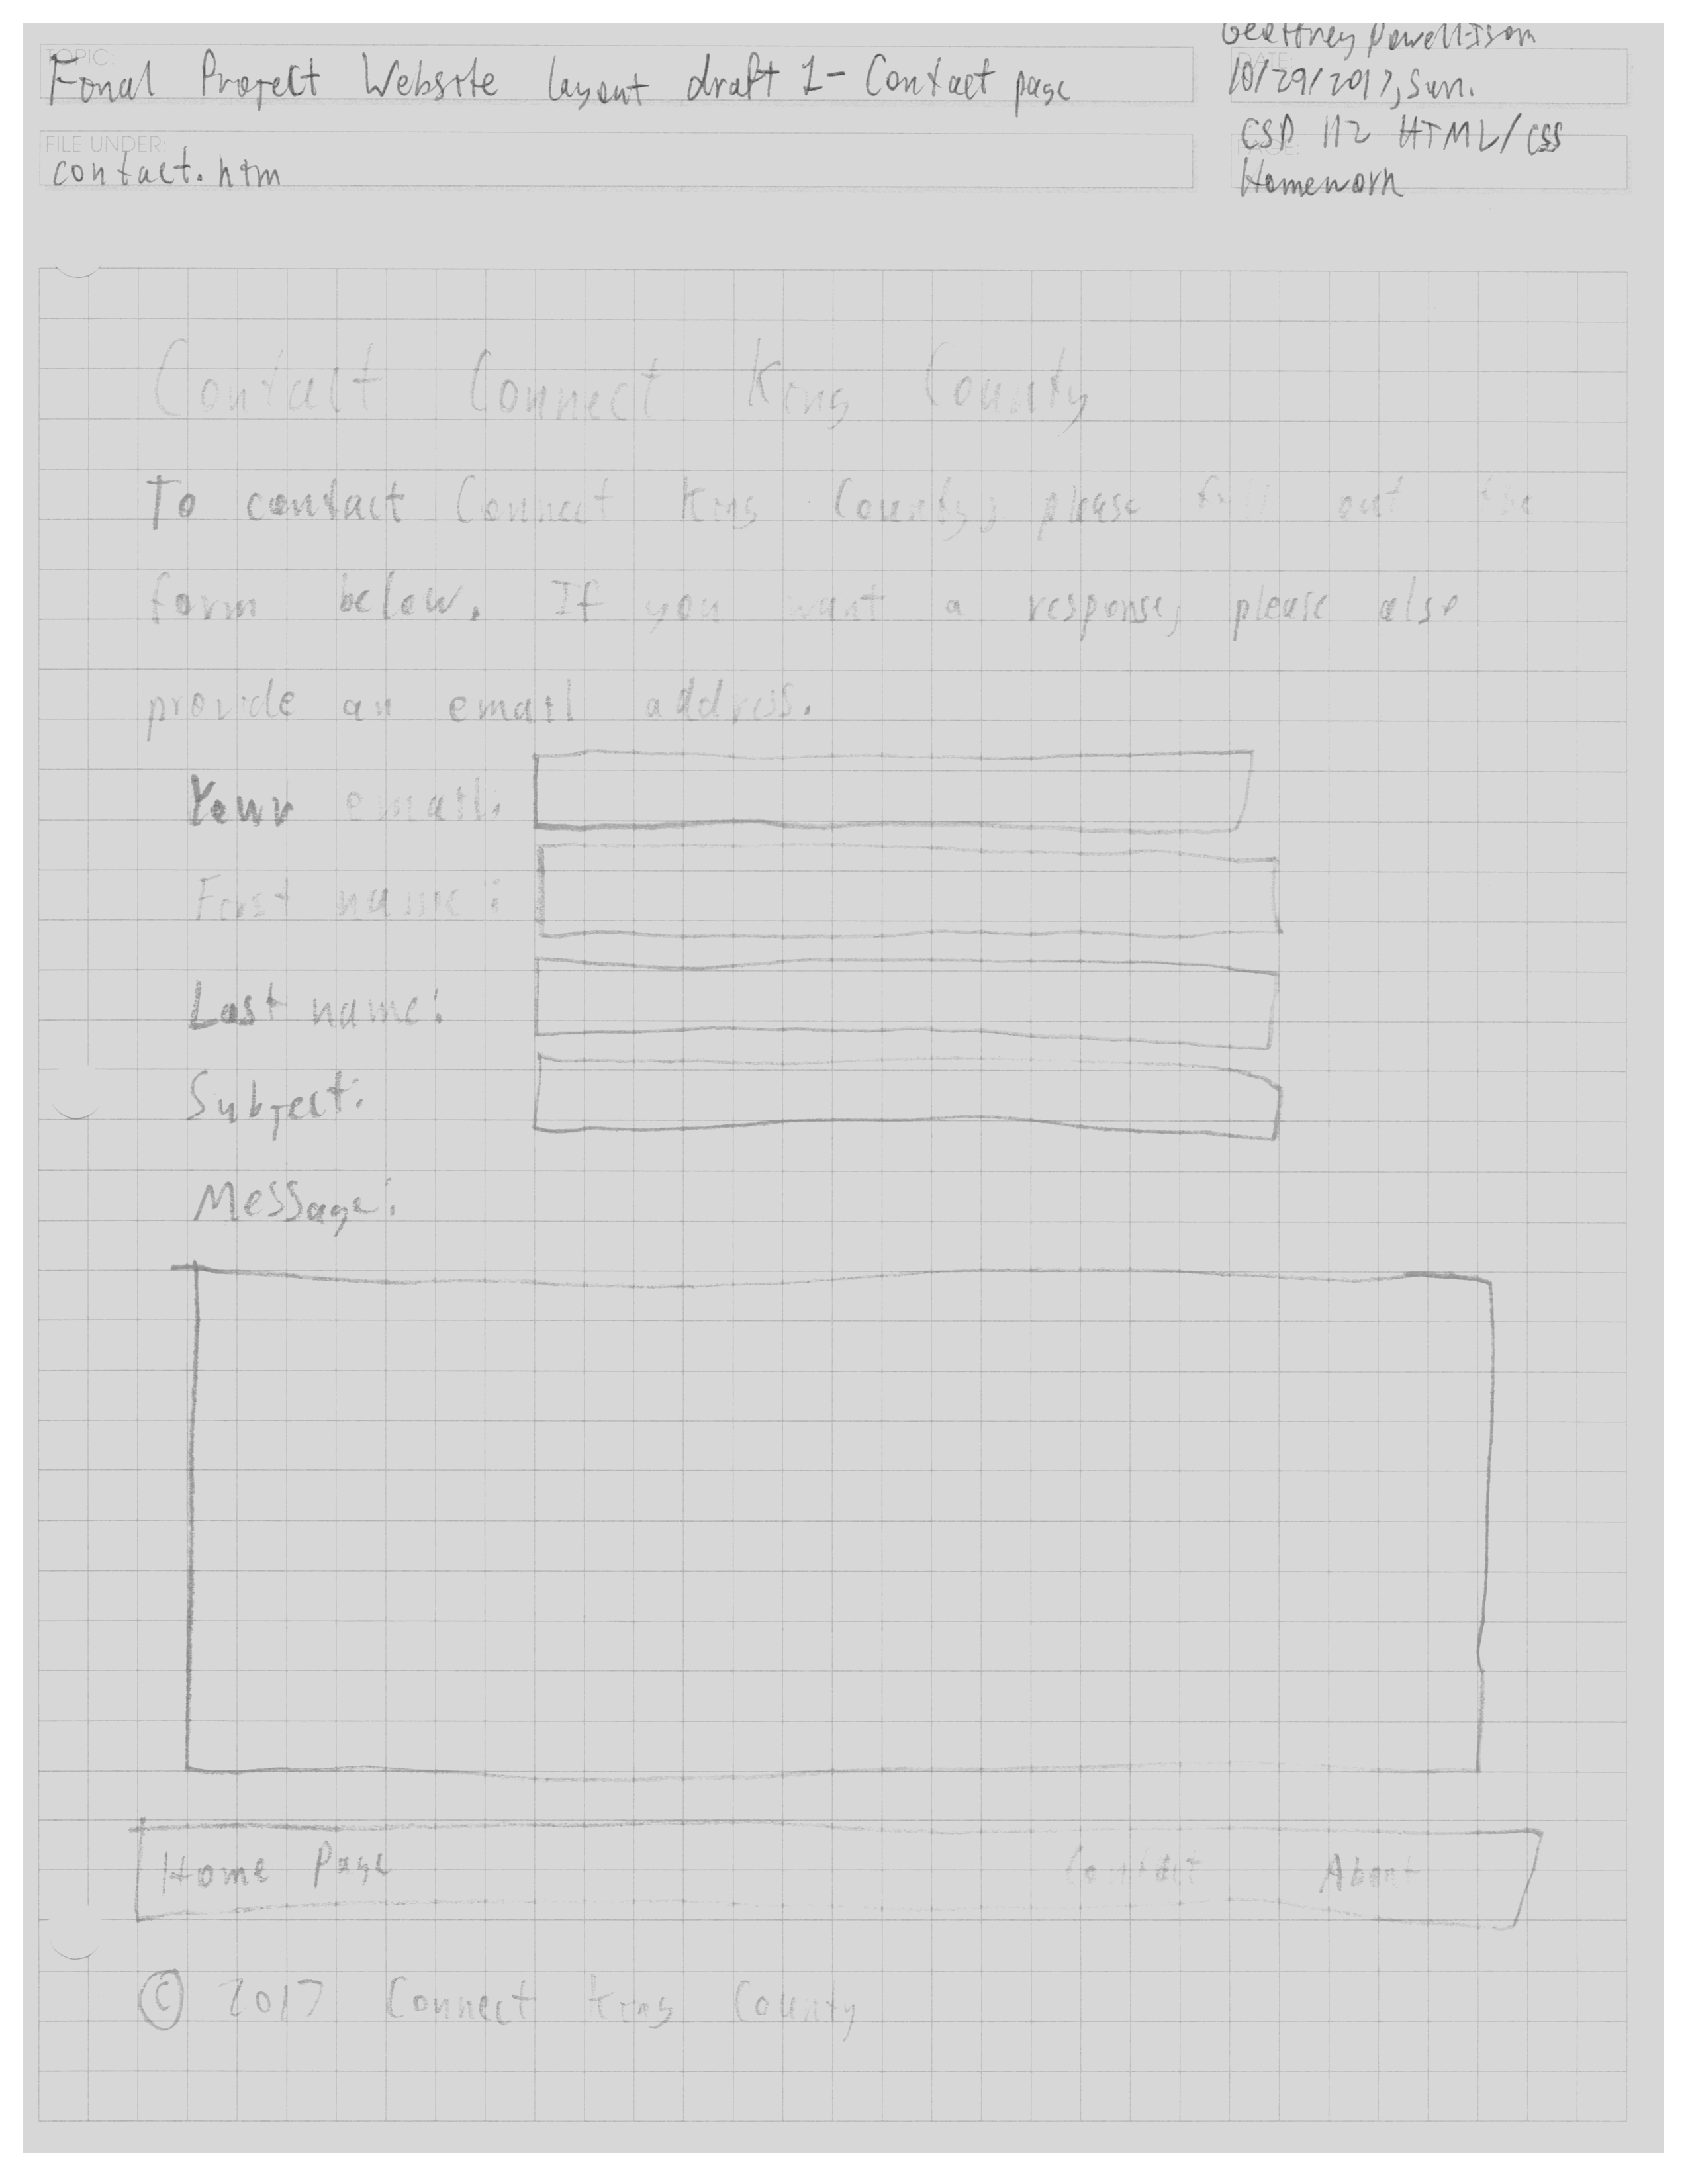 TOPIC:
Final Project Website layout draft 1- Contact page
Geoffrey Powell-Isom
DATE:
10/29/2017, Sun.
FILE UNDER:
contact.htm
CSD 112 HTML/CSS
PAGE:
Homework
Contact Connect King County
To contact Connect King County, please fill out the
form below. If you want a response, please also
provide an email address.
Your email:
First name:
Last name:
Subject:
Message:
Home Page Contact About
© 2017 Connect King County